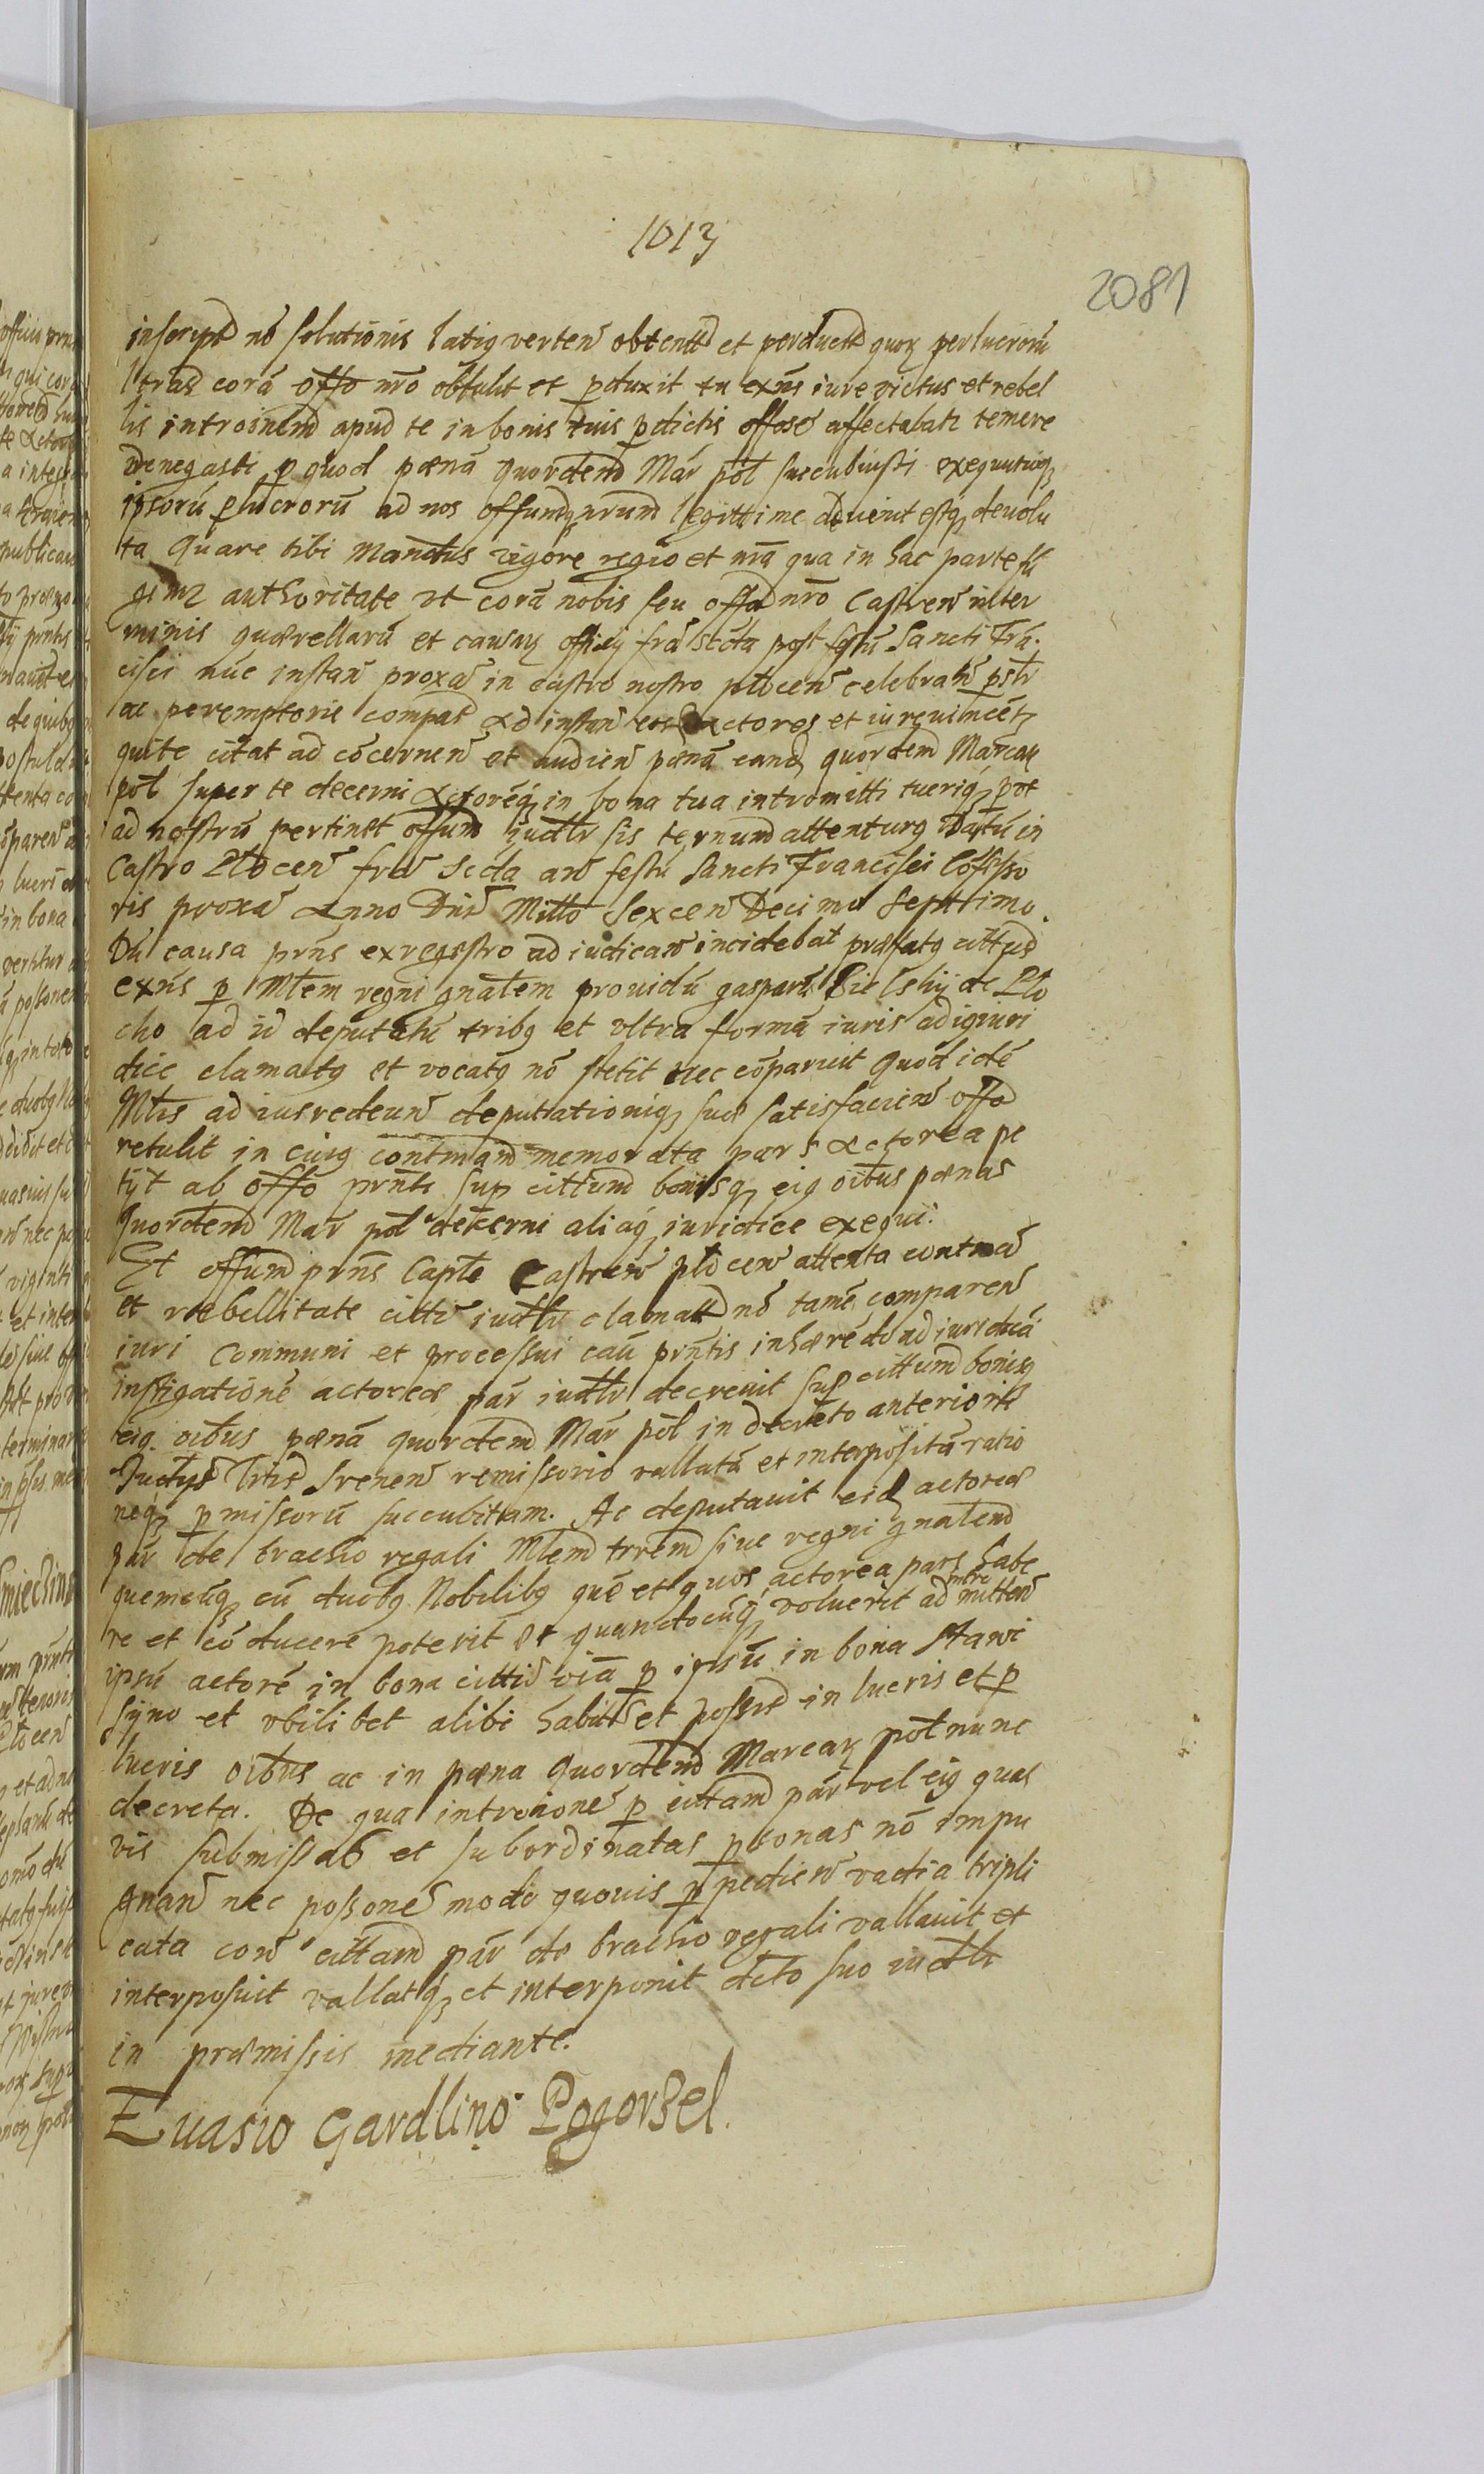 1013
2081
inscript nō solutionis latiq verten obtent et perduct quoꝝ perlucrorū
ltras corā offo nr̄o obtulit et pduxit tu exn̄s iure victus et rebel
lis introm̄em apud te in bonis tuis pdictis offose affectabati temere
denegasti p quod pœnā quordem Mar pol succubuisti exequutioq
ipsorū plucrorū ad nos offumq nrum legittime devenit estq devolu
ta Quare tibi Mandtus vigore regio et nrā qua in hac parte fū
gimr authoritate vt corā nobis seu offo nr̄o Castren in ter
minis quærellarū et causaꝝ officij fra scda post festū Sancti Frā
cisci nūc instan proxa in castro nostro plocen celebran
ac peremptorie compas Ad instan actores et iurevincēt
qui te citat ad cōcernen et audien pœnā eand quordem Marcaꝝ
pol super te decerni Actorēq in bona tua intromitti tueriq prot
ad nostrū pertinet offum iudlr sis ternum attenturq Datū in
Castro Plocen fra Scda an festū Sancti Francisci Cōfesso
ris proxa Anno Dni Millo Sexcen Decimo Septtimo.
Dū causa prn̄s ex regestro ad iudican incidebat præfatq citt
exn̄s p Mtem regni gnalem providū gasparū Bielskij de Plo
cko ad id deputatū tribq et vltra formā iuris ad iq iuri
dice clamatq et vocatq nō stetit nec cōparuit Quod idē
Mtis ad ius redeun deputationiq suæ satisfacien offo
retulit in cuiq contmam memorata pars actorea pe
tijt ab offo prnti sup cittum bonisq eiq oibus pœnas
quordem Mar pol decerni aliāq iuridice exequi.
Et offum prn̄s Captle Castren plocen attenta contma
et rebellitate citti iudlr clamatt nō tamē comparen
iuri Communi et processui caū prntis inhærēdo ad iuridicā
instigationē actoreæ par iudlr decrevit sup cittum bonisq
eiq oibus pœnā quordem Mar pol in decreto anteriori
remissorio vallatā et interpositā ratio
neq pmissorū succubitam. Ac deputavit eid actoreæ
par de brachio regali Mtem trrem sive regni gnalem
quemcūq cū duobq Nobilibq quē et quos actorea pars habe
re et cōducere poterit et quandocūq voluerit ad intromitten
ipsū actorē in bona citti viā p ipsū in bona Stawi
syno et vbilibet alibi habit et possis in lucris et p
lucris oibus ac in pœna quordem Marcaꝝ pol nunc
decreta. De qua intromone p cittam par vel eiq quas
vis submissas et subordinatas psonas nō impu
gnan nec possone modo quovis ppedien vadia tripli
cata con cittam par de brachio regali vallavit et
interposuit vallatq et interponit dcto suo iudli
in præmissis mediante.
Evasio Gardlino Pogorzel.